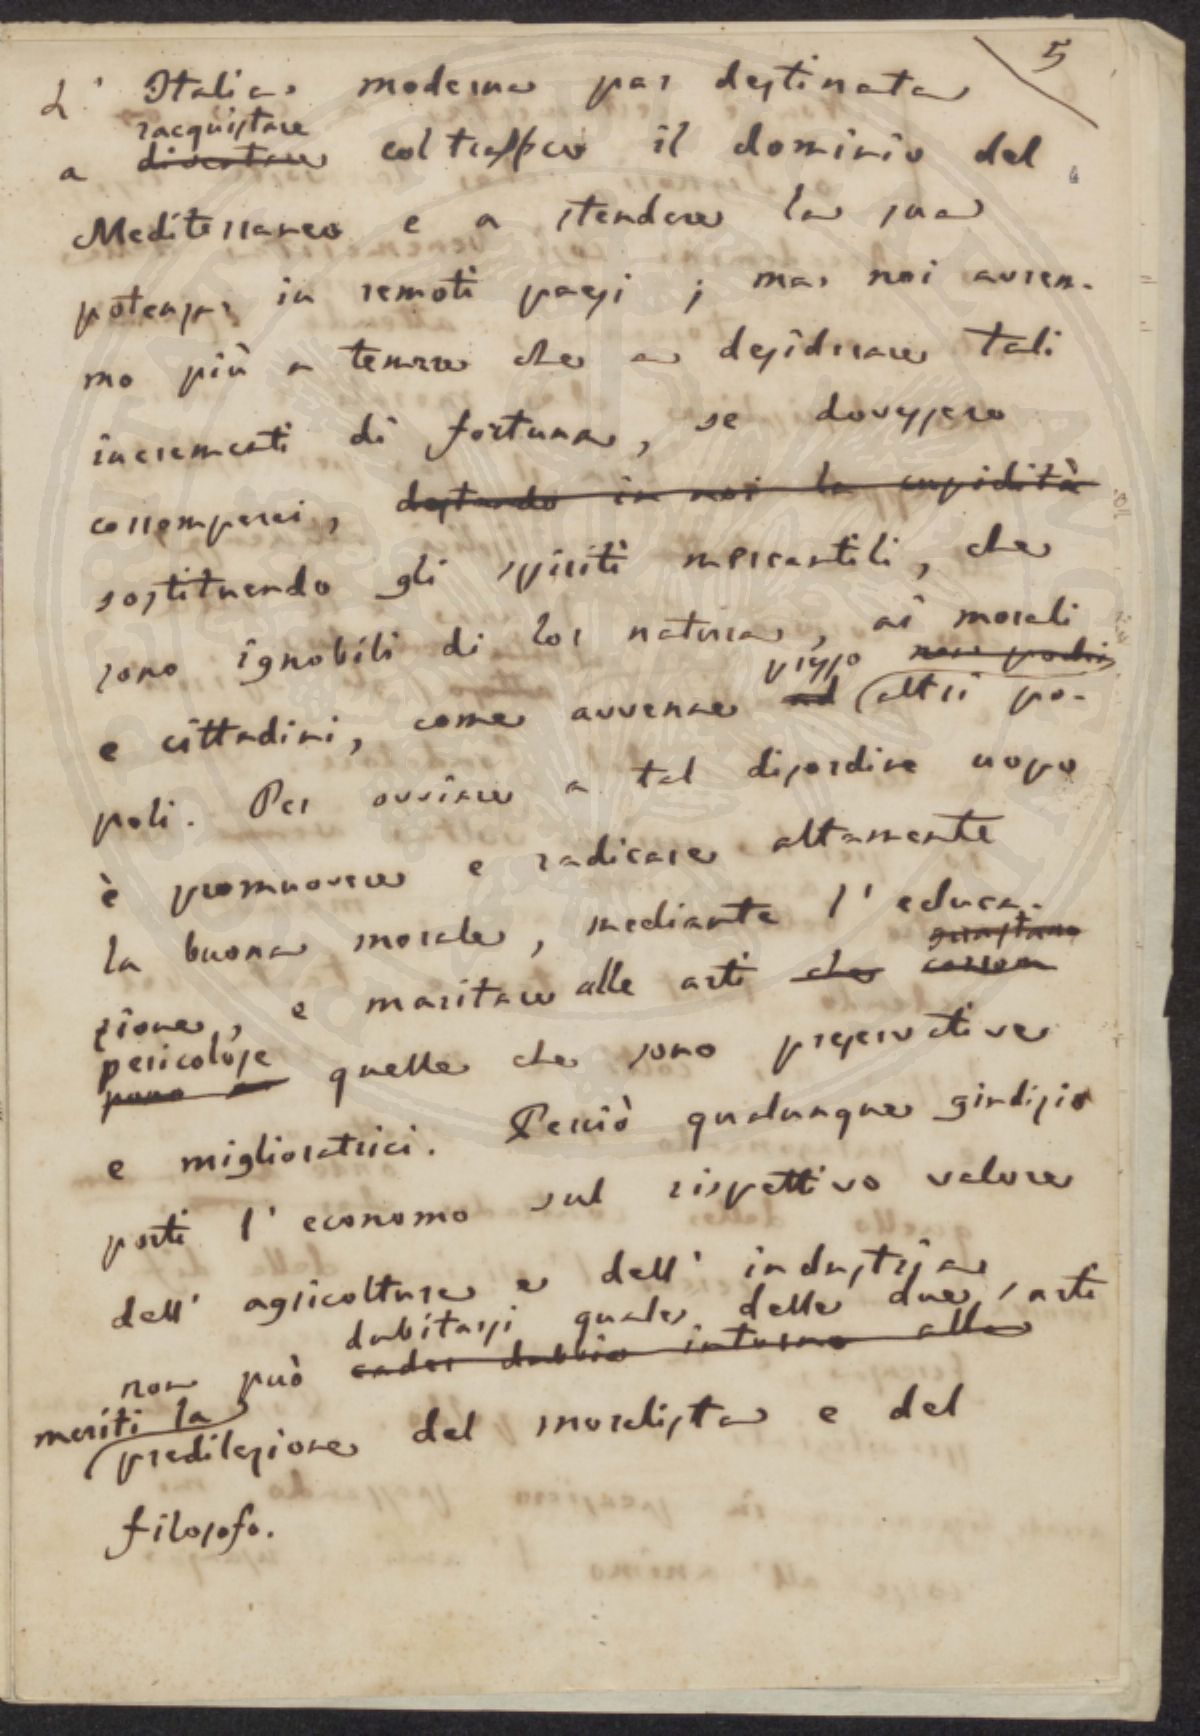 5
L' Italia moderna par destinata
racquistare
a diventare col traffico il dominio del
Mediterraneo e a stendere la sua
potenza in remoti paesi; ma noi avrem-
mo più a temere che a desiderare tali
incrementi di fortuna, se dovessero
corromperci, destando in noi la cupidità
sostituendo gli spiriti mercantili, che
sono ignobili di lor natura, ai morali
presso
e cittadini, come avvenne ad altri po-
poli. Per ovviare a tal disordine uopo
è promuovere e radicare altamente
la buona morale, mediante l' educa-
guastano
zione, e maritare alle arti che corrom
pericolose
pono quelle che sono preservative
e miglioratrici. Perciò qualunque giudizio
porti l' economo sul rispettivo valore
dell' agricoltura e dell' industria
dubitarsi quale delle due arti
non può cader dubbio intorno alla
meriti la
predilezione del moralista e del
filosofo.